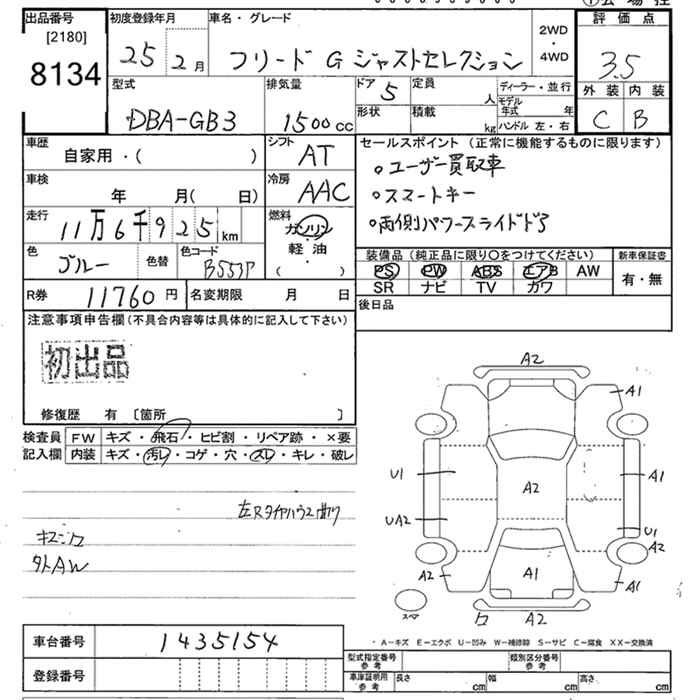 出品番号
[2180]
8134
初度登録年月
25 2月
車名・グレード
フリード G ジャストセレクション
2WD
・
4WD
評価点
3.5
外装 内装
C B
型式
DBA-GB3
排気量
1500cc
ドア 5
形状
定員 人
積載 kg
ディーラー・並行
モデル年式 年
ハンドル 左・右
車歴
自家用・( )
シフト
AT
車検
年 月( 日)
冷房
AAC
走行
11万6千925km
燃料
ガソリン
軽・油
( )
色
ブルー
色替
色コード
B553P
R券 11760円
名変期限 月 日
セールスポイント(正常に機能するものに限ります)
。ユーザー買取車
。スマートキー
。両側パワースライドドア
装備品(純正品に限り○をつけてください)
新車保証書
PS PW ABS エアB AW
有・無
SR ナビ TV カワ
後日品
注意事項申告欄(不具合内容等は具体的に記入して下さい)
初出品
修復歴 有 〔箇所 〕
検査員記入欄
FW キズ・飛石・ヒビ割・リペア跡・×要
内装 キズ・汚レ・コゲ・穴・スレ・キレ・破レ
左Rタイヤハウス曲り
キズ
外AW
A2
A1
U1
A2
A1
UA2
U1
A2
A2
A1
A1
スペア
A2
・A―キズ E―エクボ U―凹み W―補修跡 S―サビ C―腐食 XX―交換済
車台番号 1435154
登録番号
型式指定番号
参考
類別区分番号
参考
車庫証明用
参考
長さ cm 幅 cm 高さ cm